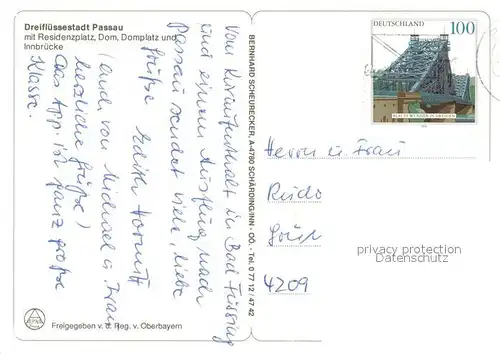 Dreiflüssestadt Passau
mit Residenzplatz, Dom, Domplatz und
Innbrücke
Vom Kuraufenthalt in Bad Füssing
und einem Ausflug nach
Passau sendet viele, liebe
Grüße Edith
(auch von Michael u. Frau
herzliche Grüße)
Das App. ist ganz große
Klasse.
Freigegeben v. d. Reg. v. Oberbayern
BERNHARD SCHEURECKER, A-4780 SCHÄRDING/INN - OÖ. - Tel. 0 77 12 / 47 42
DEUTSCHLAND 100
BLAUES WUNDER IN DRESDEN
Herrn u. Frau
4209
privacy protection
Datenschutz